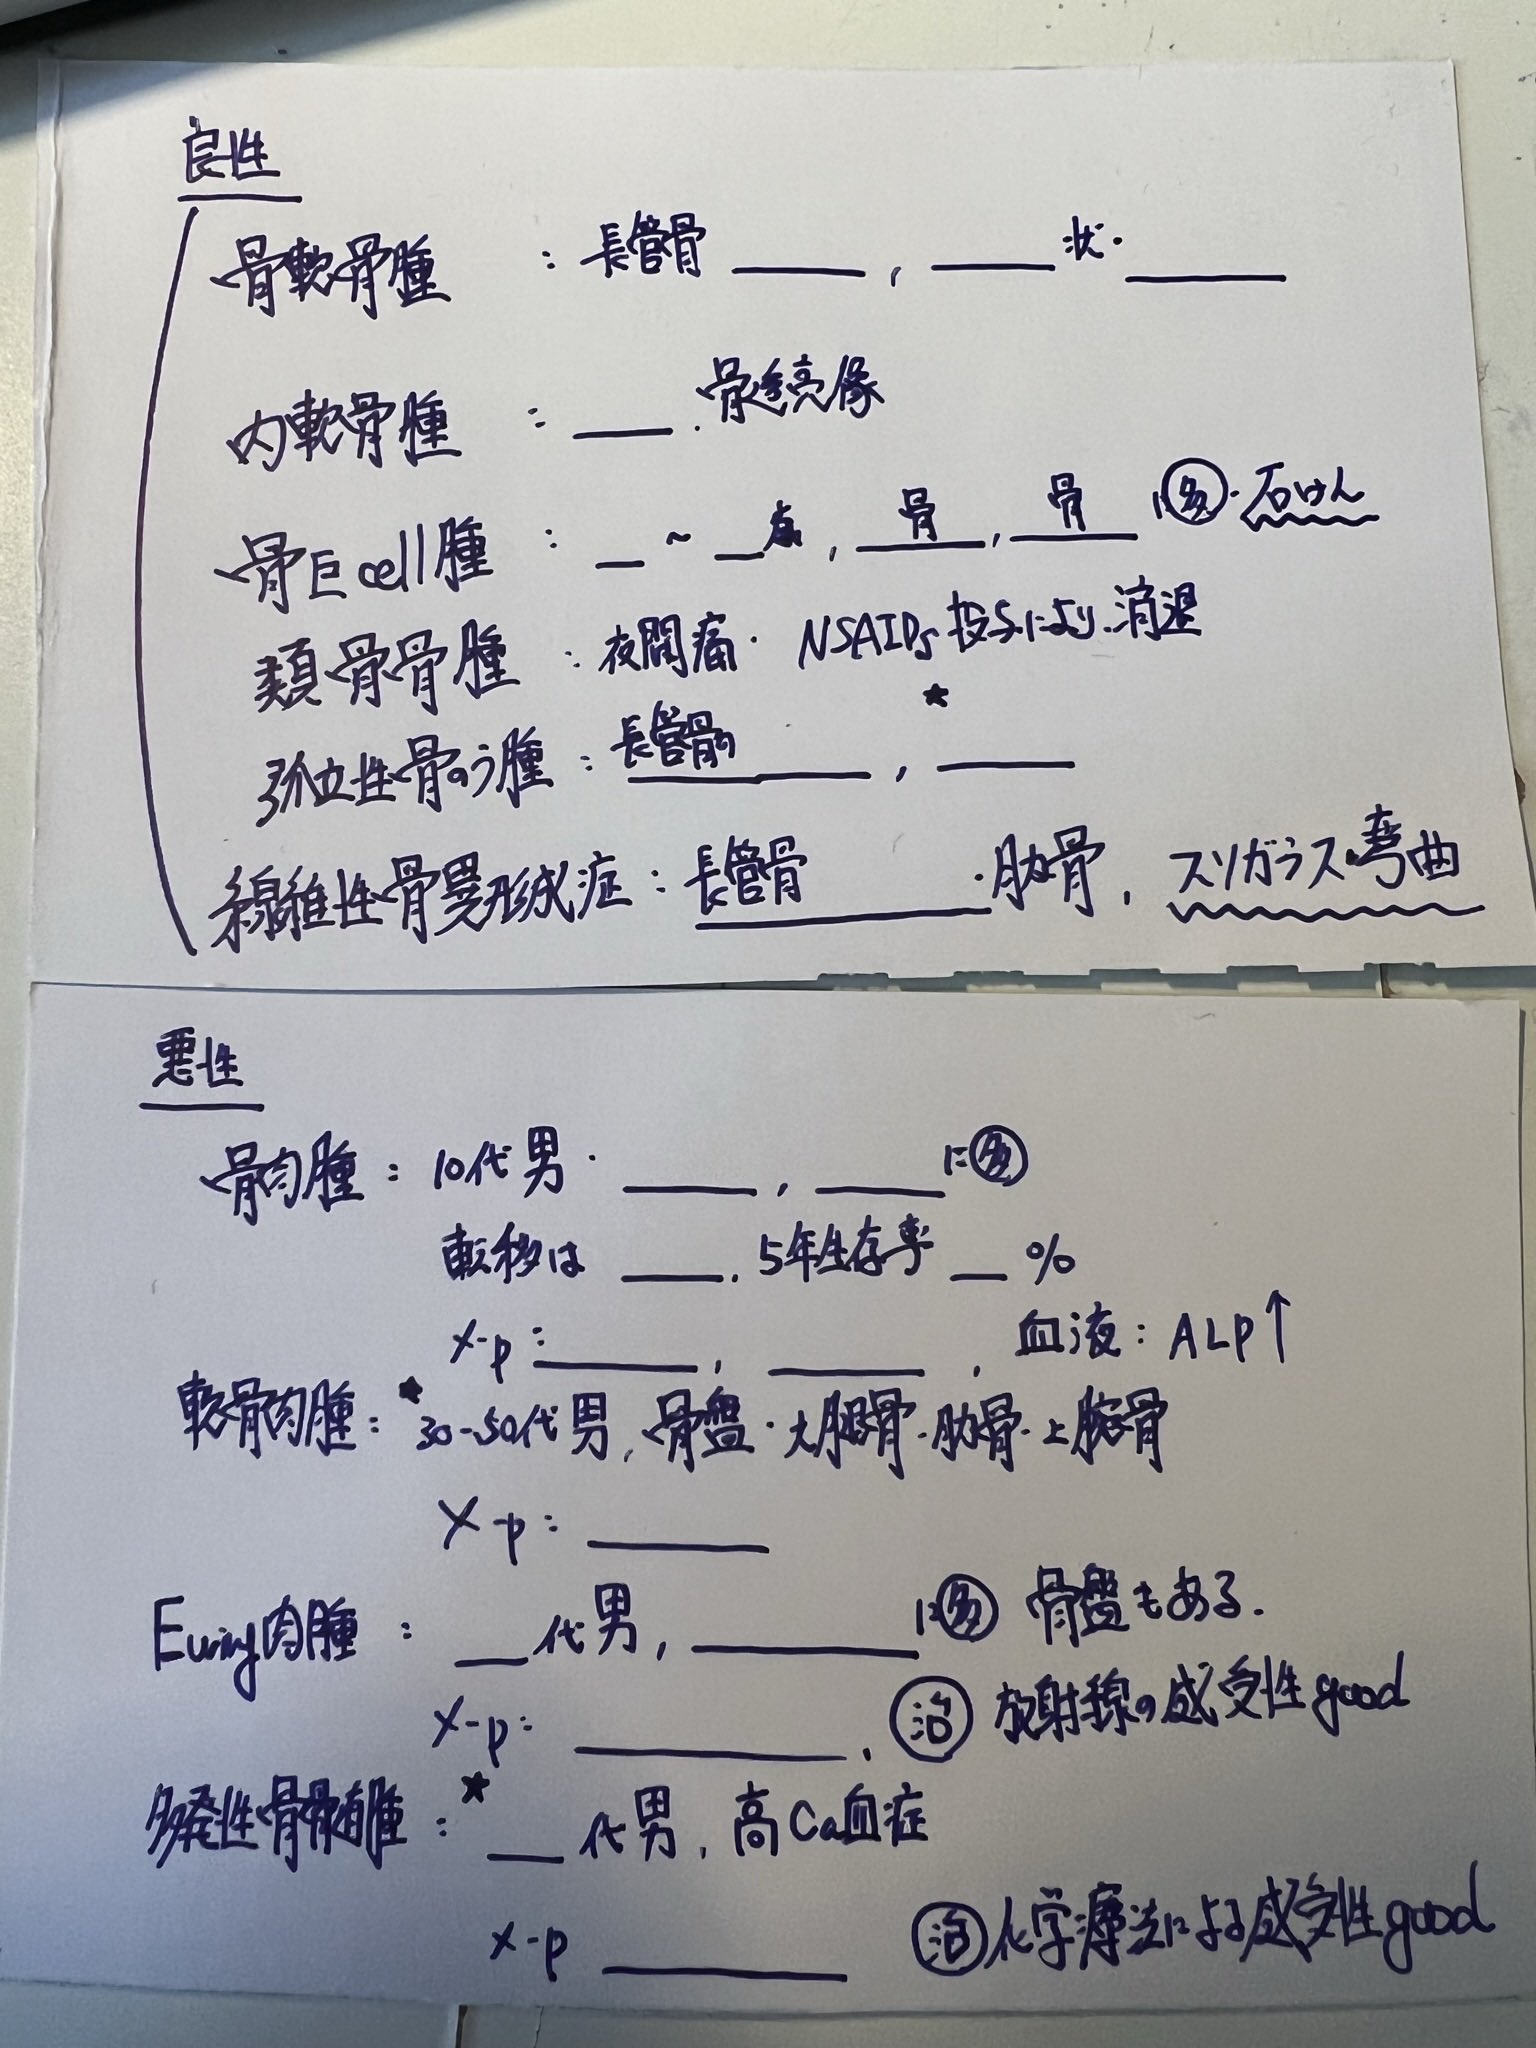 良性
骨軟骨腫 : 長管骨 ____, ____状・____
内軟骨腫 : ____. 骨透亮像
骨巨cell腫 : __ ~ __歳, __骨__, __骨__ に多・石けん
類骨骨腫 : 夜間痛・NSAIDs投与により消退
孤立性骨のう腫 : 長管骨の____, ★____
線維性骨異形成症 : 長管骨____・肋骨, スリガラス・弯曲
悪性
骨肉腫 : 10代男・____, ____に多
転移は ____. 5年生存率 __ %
X-p : ____, ____, 血液 : ALP↑
軟骨肉腫 : ★30-50代男, 骨盤・大腿骨・肋骨・上腕骨
X-p : ____
Ewing肉腫 : __代男, ____に多 骨盤もある.
X-p : ____, 治 放射線の感受性good
多発性骨髄腫 : ★__代男, 高Ca血症
X-p ____ 治 化学療法による感受性good